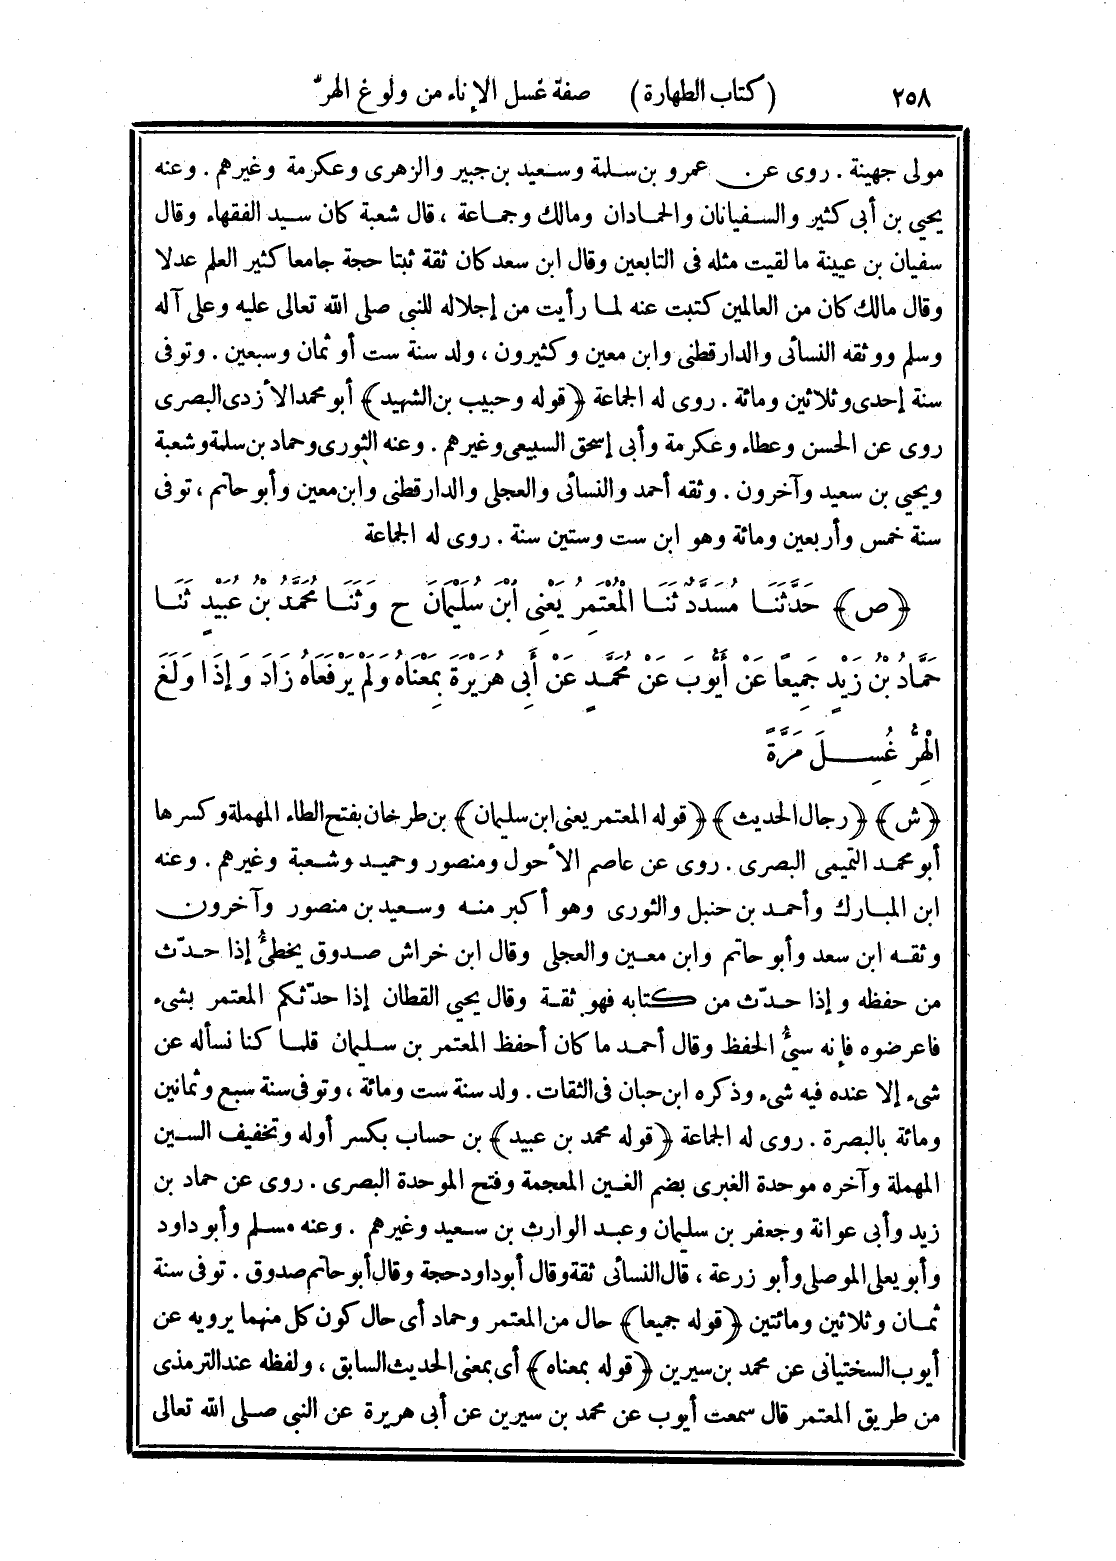 ٢٥٨ (كتاب الطهارة) صفة غسل الإناء من ولوغ الهرّ
مولى جهينة . روى عن عمرو بن سلمة وسعيد بن جبير والزهرى وعكرمة وغيرهم . وعنه
يحيى بن أبى كثير والسفيانان والحمادان ومالك وجماعة ، قال شعبة كان سيد الفقهاء وقال
سفيان بن عيينة ما لقيت مثله فى التابعين وقال ابن سعد كان ثقة ثبتا حجة جامعا كثير العلم عدلا
وقال مالك كان من العالمين كتبت عنه لما رأيت من إجلاله للنبى صلى الله تعالى عليه وعلى آله
وسلم ووثقه النسائى والدارقطنى وابن معين وكثيرون ، ولد سنة ست أو ثمان وسبعين . وتوفى
سنة إحدى وثلاثين ومائة . روى له الجماعة ﴿قوله وحبيب بن الشهيد﴾ أبو محمد الأزدى البصرى
روى عن الحسن وعطاء وعكرمة وأبى إسحق السبيعى وغيرهم . وعنه الثورى وحماد بن سلمة وشعبة
ويحيى بن سعيد وآخرون . وثقه أحمد والنسائى والعجلى والدارقطنى وابن معين وأبو حاتم ، توفى
سنة خمس وأربعين ومائة وهو ابن ست وستين سنة . روى له الجماعة
﴿ص﴾ حَدَّثَنَا مُسَدَّدٌ ثَنَا الْمُعْتَمِرُ يَعْنِى ابْنَ سُلَيْمَانَ ح وَثَنَا مُحَمَّدُ بْنُ عُبَيْدٍ ثَنَا
حَمَّادُ بْنُ زَيْدٍ جَمِيعًا عَنْ أَيُّوبَ عَنْ مُحَمَّدٍ عَنْ أَبِى هُرَيْرَةَ بِمَعْنَاهُ وَلَمْ يَرْفَعَاهُ زَادَ وَإِذَا وَلَغَ
الْهِرُّ غُسِلَ مَرَّةً
﴿ش﴾ ﴿رجال الحديث﴾ ﴿قوله المعتمر يعنى ابن سليمان﴾ بن طرخان بفتح الطاء المهملة وكسرها
أبو محمد التميمى البصرى . روى عن عاصم الأحول ومنصور وحميد وشعبة وغيرهم . وعنه
ابن المبارك وأحمد بن حنبل والثورى وهو أكبر منه وسعيد بن منصور وآخرون
وثقه ابن سعد وأبو حاتم وابن معين والعجلى وقال ابن خراش صدوق يخطئُ إذا حدّث
من حفظه وإذا حدّث من كتابه فهو ثقة وقال يحيى القطان إذا حدّثكم المعتمر بشىء
فاعرضوه فإنه سيئُ الحفظ وقال أحمد ما كان أحفظ المعتمر بن سليمان قلما كنا نسأله عن
شىء إلا عنده فيه شىء وذكره ابن حبان فى الثقات . ولد سنة ست ومائة ، وتوفى سنة سبع وثمانين
ومائة بالبصرة . روى له الجماعة ﴿قوله محمد بن عبيد﴾ بن حساب بكسر أوله وتخفيف السين
المهملة وآخره موحدة الغبرى بضم الغين المعجمة وفتح الموحدة البصرى . روى عن حماد بن
زيد وأبى عوانة وجعفر بن سليمان وعبد الوارث بن سعيد وغيرهم . وعنه مسلم وأبو داود
وأبو يعلى الموصلى وأبو زرعة ، قال النسائى ثقة وقال أبو داود حجة وقال أبو حاتم صدوق . توفى سنة
ثمان وثلاثين ومائتين ﴿قوله جميعا﴾ حال من المعتمر وحماد أى حال كون كل منهما يرويه عن
أيوب السختيانى عن محمد بن سيرين ﴿قوله بمعناه﴾ أى بمعنى الحديث السابق ، ولفظه عند الترمذى
من طريق المعتمر قال سمعت أيوب عن محمد بن سيرين عن أبى هريرة عن النبى صلى الله تعالى